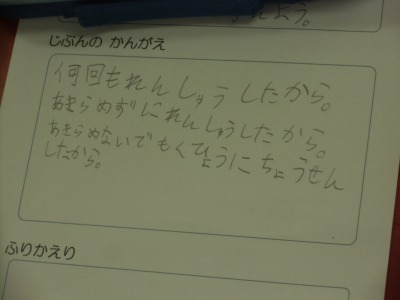 よう。
じぶんの かんがえ
何回もれんしゅうしたから。
あきらめずにれんしゅうしたから。
あきらめないでもくひょうにちょうせん
したから。
ふりかえり